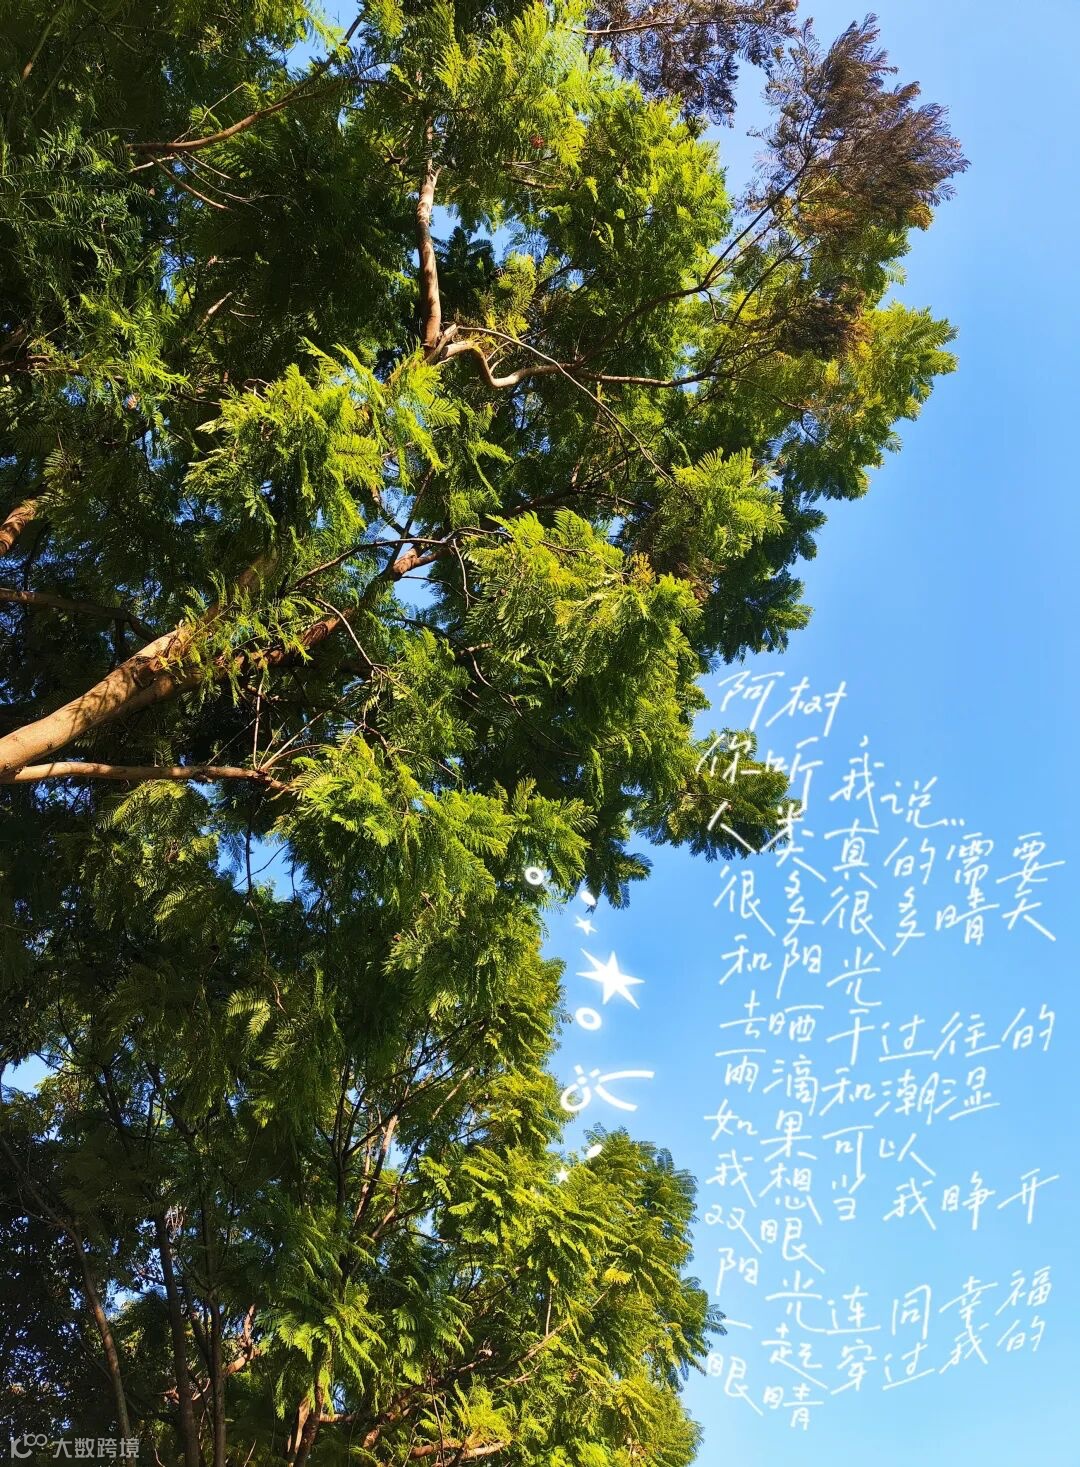 阿树
你听我说...
人类真的需要
很多很多晴天
和阳光
去晒干过往的
雨滴和潮湿
如果可以
我想当我睁开
双眼
阳光连同幸福
一起穿过我的
眼睛
大数跨境